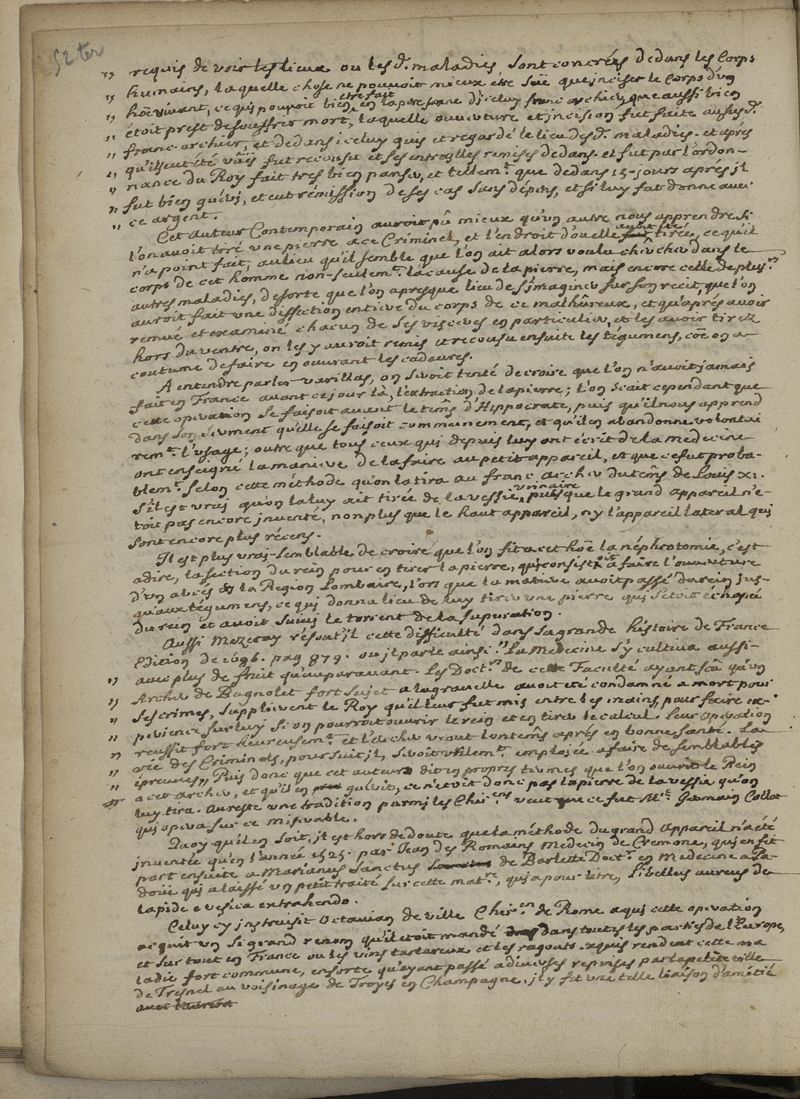 52 ter
" requis de voir les lieux ou les d. maladies sont concréés dedans les Corps
" humains, laquelle chose ne pouvoit mieux etre sùë que inciser le Corps d'un
" hoē vivant, ce qui pouvoit bien etre fait en la personne d'iceluy franc archier, que aussi bien
" etoit prest de souffrir mort, laquelle ouverture et incision fut faite au susd.
" franc archier, et dedans iceluy quis et regardé le lieu desd. maladies. et après
" qu'ils eut été vûs fut recousu et ses entrailles remises dedans. et fut par l'ordon-
" nance du Roy fait tres bien panser, et tellemt. que dedans 15 jours après il
" fut bien guéri, et eut rémission de ses cas sans dépens, et si luy fut donné avec
" ce argent.
Cet auteur Contemporain auroit pû mieux qu'un autre nous apprendre si
l'on avoit tiré une pierre a ce Criminel, et l'endroit d'ou elle avoit été tirée, ce qu'il
n'a point fait, au lieu qu'il semble que l'on ait alors voulu chercher dans le
corps de cet homme non-seulemt. la cause de la pierre, mais encore celle de plusrs.
autres maladies, de sorte que l'on a presque lieu de s'imaginer sur son recit, que l'on
auroit fait une dissection entiere du corps de ce malhûreux, et qu'après avoir
remué et examiné chacun de ses visceres en particulier, et les avoir tirez
hors du ventre, on les y auroit remis et recousu ensuite les tégumens, coē on a
coutume de faire en ouvrant les cadavres.
A entendre parler Varillas, on seroit tenté de croire que l'on n'avoit jamais
fait en France avant ce jour là, l'extraction de la pierre; l'on sçait cependant que
cette operation se faisoit avant le tems d'Hippocrate, puis qu'il nous apprend
dans son serment qu'elle se faisoit communement, et qu'il en abandonne volontai
remt. l'usage; outre que tous ceux qui depuis luy ont écrit de la medecine
ont enseigné la maniere de la faire au petit appareil, et que ce fut proba-
blemt. selon cette méthode qu'on la tira au franc archer du tems de Louis XI.
s'il est vrai qu'on la luy ait tirée de la vessie urinaire, puisque le grand appareil n'é-
toit pas encore inventé, non plus que le haut appareil, n'y l'appareil lateral qui
sont encore plus récens.
Il est plus vrai-semblable de croire que l'on fit a cet hoē la néphrotomie, c'est
adire, la section du rein pour en tirer la pierre, qui consistoit à faire l'ouverture
d'un abcès à la Region Lombaire, lors que la matiere avoit passé du rein jus-
qu'aux tégumens, ce qui donna lieu de luy tirer une pierre qui s'étoit échapée
du rein et avoit suivi le torrent de la supuration.
Aussi Mezeray résout-il cette difficulté dans sa grande histoire de France
Edition de 1685. pag 879. ou il parle ainsi. " La Medecine s'y cultiva aussi-
" avec plus de fruit qu'auparavant. Les Doctrs. de cette Faculté ayant sçû qu'un
" Archer de Bagnolet fort sujet a la gravelle avoit été condamné a mort pour
" ses crimes, supplièrent le Roy qu'il leur fut mis entre les mains, pour faire ex-
" perience sur luy si on pourroit ouvrir le rein et en tirer le calcul. Leur operation
" reussit fort heureusemt. et l'archer vécut lontems après en bonne santé. La
" vie des Criminels, poursuit il, seroit utilemt. employée a faire de semblables
" épreuves,, Puis donc que cet auteur dit en propres termes que l'on ouvrit le Rein
a cet archer, et qu'il en guérit, ce n'étoit donc pas la pierre de la vessie qu'on
luy tira. Au reste une tradition parmi les Chirens. veut que ce fut Mt. Germain Collot
qui opera sur ce miserable.
Quoy qu'il en soit, il est hors de doute que la méthode du grand appareil n'a été
inventée qu'en l'année 1525. par Jean des Romains Medecin de Cremone, qui en fit
part ensuite a Marianus Sanctus de Barlette Doctr. en Medecine a Pa-
doüe qui a laissé un petit traité sur cette matre., qui a pour titre, Libellus aureus de
lapide e vesica extrahendo.
Celuy cy instruisit Octavian de Ville Chiren. de Rome a qui cette operation
acquit un si grand renom qu'il étoit mandé dans toutes les parties de l'Europe,
et sur tout en France ou les vins tartareux et les ragouts exquis rendent cette ma
ladie fort commune, ensorte qu'ayant passé a diverses reprises par la petite ville
de Tresnel au voisinage de Troyes en Champagne, il y fit une telle liaison d'amitié